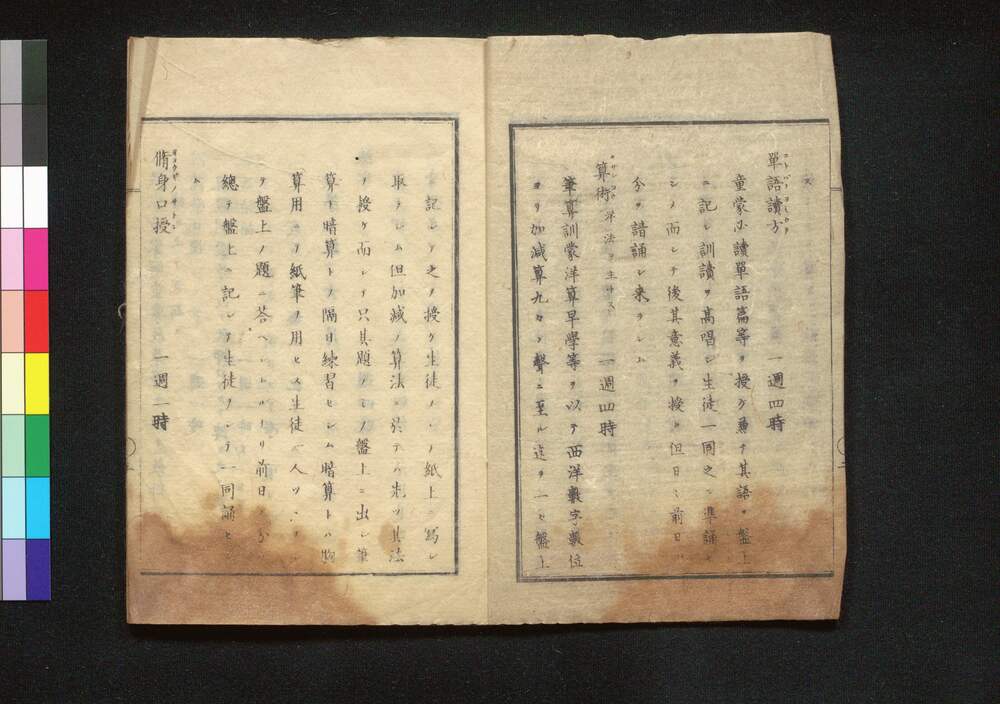 單語讀方 一週四時
コトバノヨミカタ
童蒙必讀單語篇等ヲ授ケ兼テ其語ヲ盤上
ニ記シ訓讀ヲ高唱シ生徒一同之ニ準誦セ
シメ而シテ後其意義ヲ授ク但日々前日ノ
分ヲ諳誦シ来ラシム
算術 洋法ヲ主トス 一週四時
サンジュツ
筆算訓蒙洋算早學等ヲ以テ西洋數字數位
ヨリ加減算九々ノ聲ニ至ル迄ヲ一々盤上
ニ記シテ之ヲ授ケ生徒ノ紙上ニ寫シ
取ラシム但加減ノ算法ニ於テハ先ツ其法
ヲ授ケ而シテ只其題ノミヲ盤上ニ出シ筆
算ト暗算トヲ隔日練習セシム暗算トハ胸
算用ニテ紙筆ヲ用ヒス生徒一人ツヽヲシ
テ盤上ノ題ニ答ヘシムルナリ前日ノ分ハ
總テ盤上ニ記シテ生徒ヲシテ一同誦セ
ム
脩身口授 一週一時
ギヨウギノサトシ